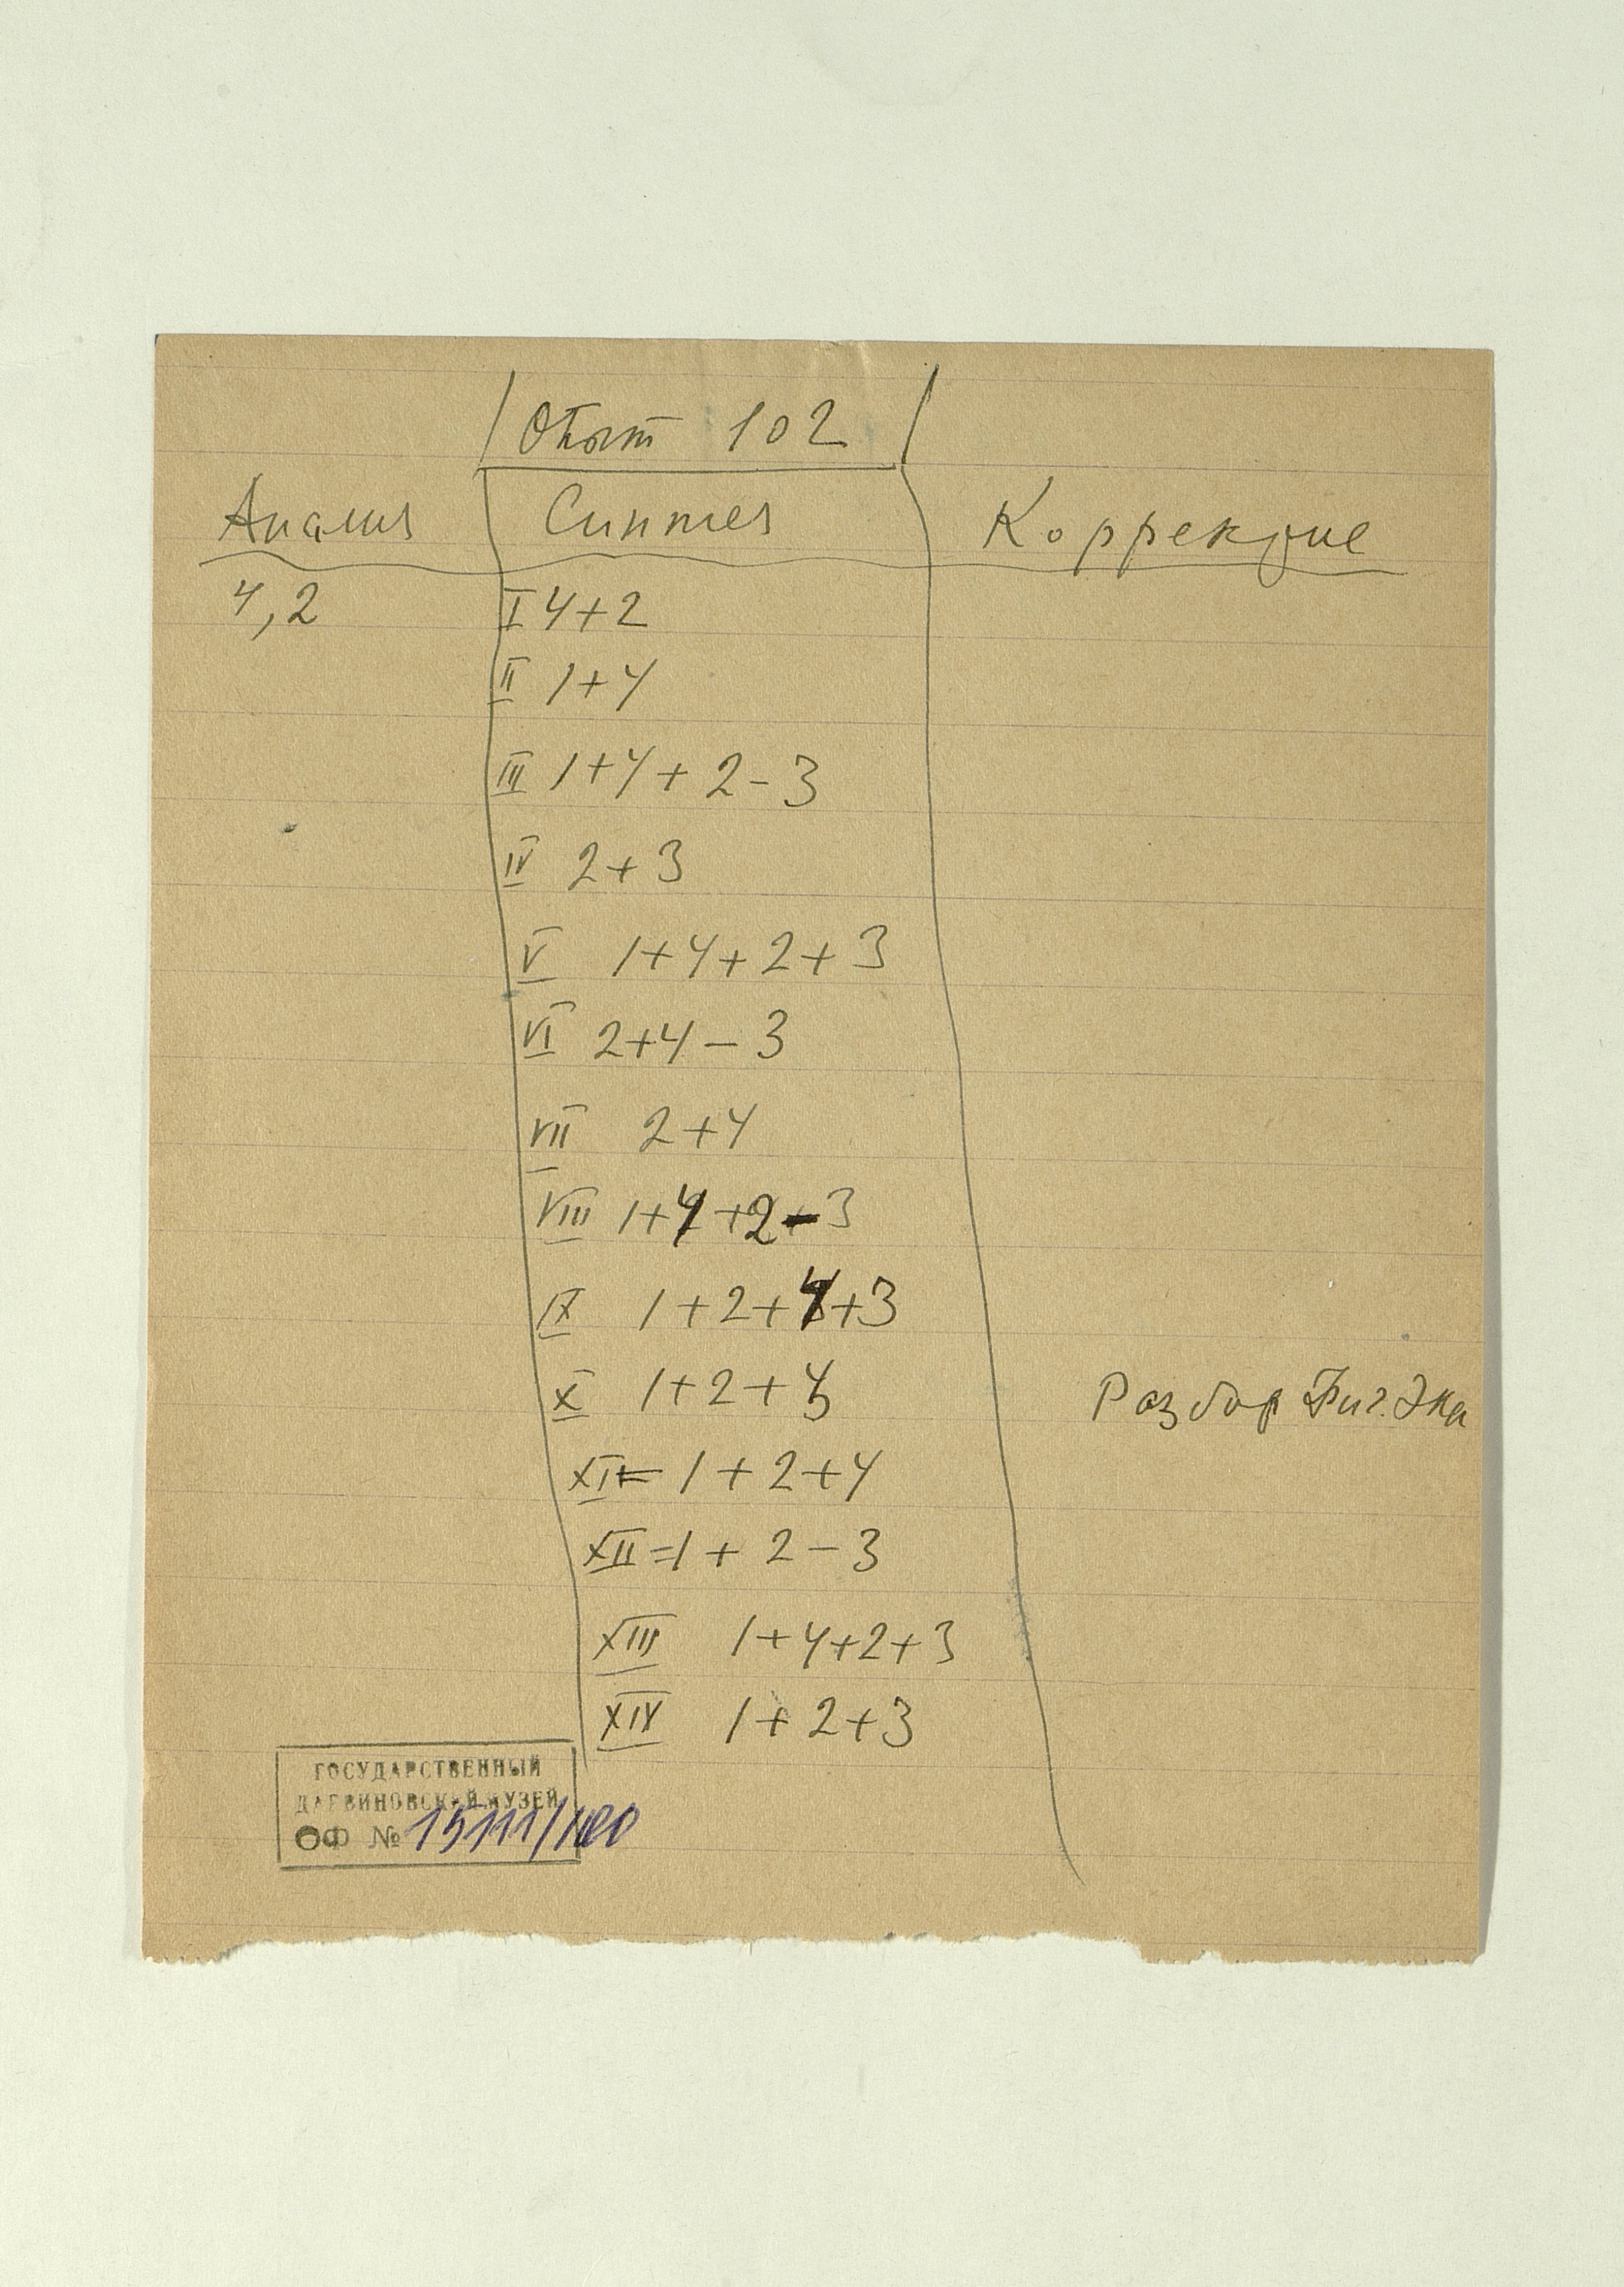 Опыт 102
Анализ Синтез Коррекция
4,2 I 4+2
II 1+4
III 1+4+2-3
IV 2+3
V 1+4+2+3
VI 2+4-3
VII 2+4
VIII 1+4+2-3
IX 1+2+4+3
X 1+2+4 Разбор Фиг.
XI = 1+2+4
XII = 1+2-3
XIII 1+4+2+3
XIV 1+2+3
ГОСУДАРСТВЕННЫЙ
ДАРВИНОВСКИЙ МУЗЕЙ
ОФ №